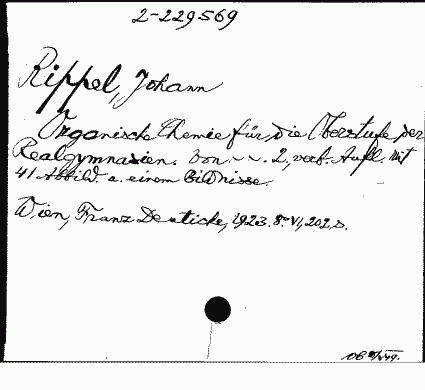 2-229569
Rippel, Johann
Organische Chemie für die Oberstufe der
Realgymnasien. Von ~ ~. 2, verb. Aufl. Mit
41 Abbild. u. einem Bildnisse.
Wien, Franz Deuticke, 1923. 8° VI, 202 S.